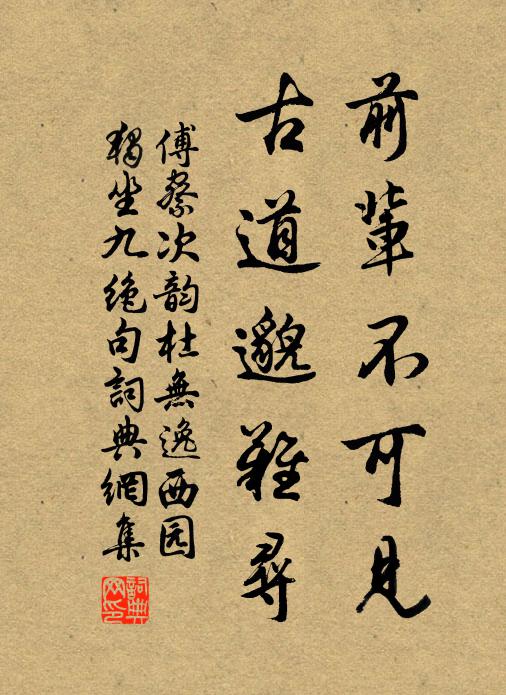 前輩不可見
古道邈難尋
傅察次韵杜無逸西园
獨坐九绝句詞典網集
詞典網印